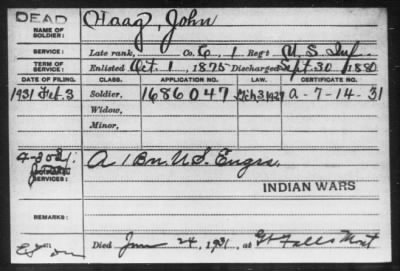 DEAD
Haag, John
NAME OF SOLDIER:
SERVICE: Late rank, Co. C, 1 Reg't U.S. Inf.
TERM OF SERVICE: Enlisted Oct. 1, 1875 Discharged Sept. 30, 1880
DATE OF FILING. CLASS. APPLICATION NO. LAW. CERTIFICATE NO.
1931 Feb. 3 Soldier, 1686047 1927 a-7-14-31
Widow,
Minor,
A 1 Bn. U.S. Engrs.
SERVICES:
INDIAN WARS
REMARKS:
Died June 24, 1931, at Gt Falls Mont